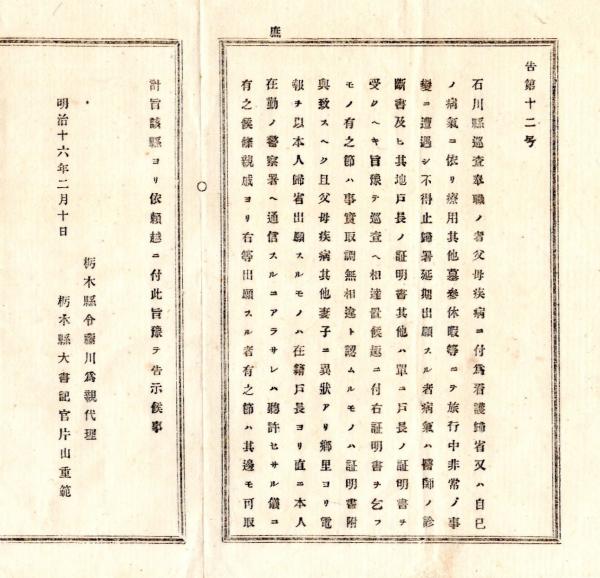 庶
告第十二号
石川縣巡査奉職ノ者父母疾病ニ付爲看護歸省又ハ自己
ノ病氣ニ依リ療用其他墓參休暇等ニテ旅行中非常ノ事
變ニ遭遇シ不得止歸署延期出願スル者病氣ハ醫師ノ診
斷書及ヒ其地戸長ノ証明書其他ハ單ニ戸長ノ証明書ヲ
受クヘキ旨豫テ巡査ヘ相達置候趣ニ付右証明書ヲ乞フ
モノ有之節ハ事實取調無相違ト認ムルモノハ証明書附
與致スヘク且父母疾病其他妻子ニ異狀アリ鄕里ヨリ電
報ヲ以本人歸省出願スルモノハ在籍戸長ヨリ直ニ本人
在勤ノ警察署ヘ通信スルニアラサレハ聽許セサル儀ニ
有之候條親戚ヨリ右等出願スル者有之節ハ其邊モ可取
計旨該縣ヨリ依賴越ニ付此旨豫テ告示候事
明治十六年二月十日
栃木縣令藤川爲親代理
栃木縣大書記官片山重範